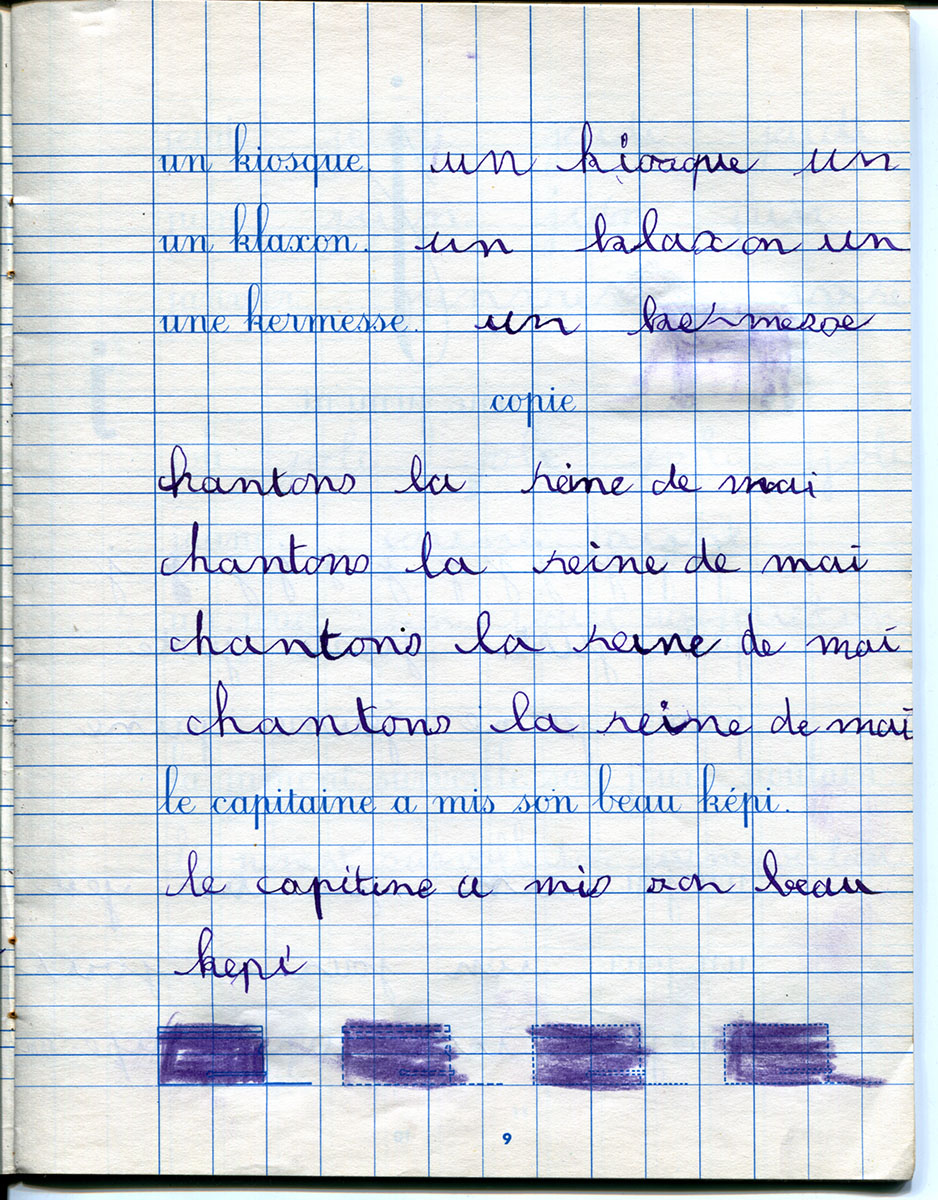 un kiosque. un kiosque un
un klaxon. un klaxon un
une kermesse. un kermesse
copie
chantons la reine de mai
chantons la reine de mai
chantons la reine de mai
chantons la reine de mai
le capitaine a mis son beau képi.
le capitine a mis son beau
kepi
9